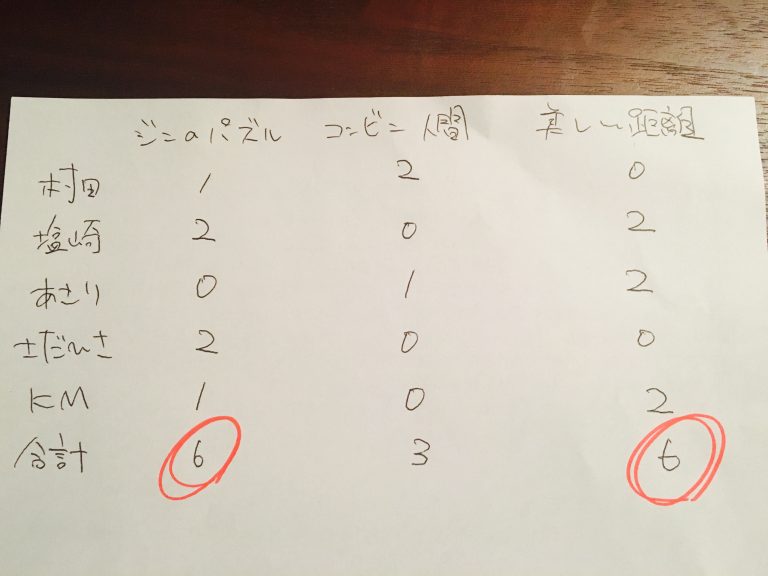 ジニのパズル コンビニ人間 美しい距離
村田 1 2 0
塩崎 2 0 2
あさり 0 1 2
さだひさ 2 0 0
KM 1 0 2
合計 6 3 6